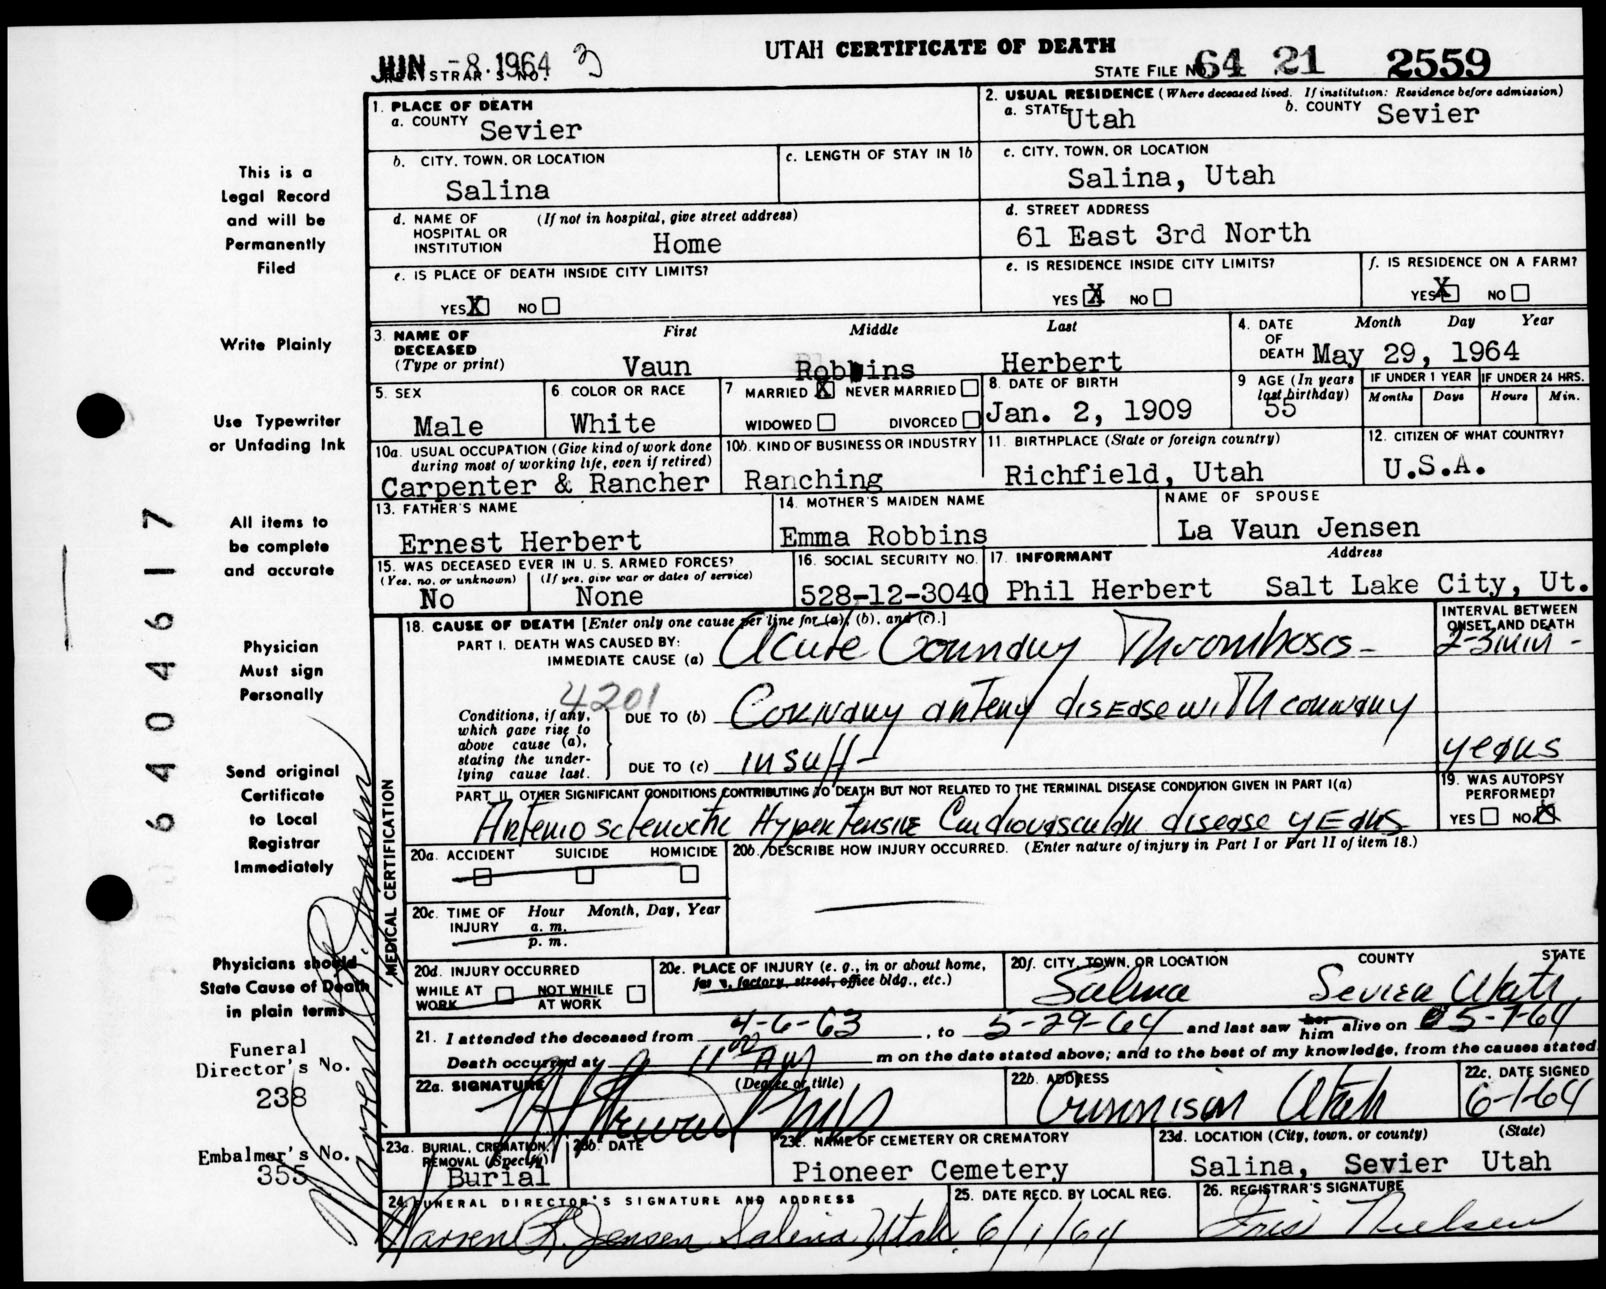 JUN -8.1964 2
REGISTRAR'S NO.
UTAH CERTIFICATE OF DEATH
STATE FILE NO. 64 21 2559
1. PLACE OF DEATH
a. COUNTY Sevier
2. USUAL RESIDENCE (Where deceased lived. If institution: Residence before admission)
a. STATE Utah b. COUNTY Sevier
b. CITY, TOWN, OR LOCATION
Salina
c. LENGTH OF STAY IN 1b
c. CITY, TOWN, OR LOCATION
Salina, Utah
d. NAME OF HOSPITAL OR INSTITUTION (If not in hospital, give street address)
Home
d. STREET ADDRESS
61 East 3rd North
e. IS PLACE OF DEATH INSIDE CITY LIMITS?
YES X NO
e. IS RESIDENCE INSIDE CITY LIMITS?
YES X NO
f. IS RESIDENCE ON A FARM?
YES X NO
3. NAME OF DECEASED (Type or print)
First Middle Last
Vaun Robbins Herbert
4. DATE OF DEATH Month Day Year
May 29, 1964
5. SEX
Male
6. COLOR OR RACE
White
7 MARRIED X NEVER MARRIED
WIDOWED DIVORCED
8. DATE OF BIRTH
Jan. 2, 1909
9 AGE (In years last birthday)
55
IF UNDER 1 YEAR
Months Days
IF UNDER 24 HRS.
Hours Min.
10a. USUAL OCCUPATION (Give kind of work done during most of working life, even if retired)
Carpenter & Rancher
10b. KIND OF BUSINESS OR INDUSTRY
Ranching
11. BIRTHPLACE (State or foreign country)
Richfield, Utah
12. CITIZEN OF WHAT COUNTRY?
U.S.A.
13. FATHER'S NAME
Ernest Herbert
14. MOTHER'S MAIDEN NAME
Emma Robbins
NAME OF SPOUSE
La Vaun Jensen
15. WAS DECEASED EVER IN U. S. ARMED FORCES?
(Yes, no, or unknown) (If yes, give war or dates of service)
No None
16. SOCIAL SECURITY NO.
528-12-3040
17. INFORMANT Address
Phil Herbert Salt Lake City, Ut.
MEDICAL CERTIFICATION
18. CAUSE OF DEATH [Enter only one cause per line for (a), (b), and (c).]
PART I. DEATH WAS CAUSED BY:
IMMEDIATE CAUSE (a) Acute Coronary Thrombosis -
INTERVAL BETWEEN ONSET AND DEATH
2-3 min -
4201
Conditions, if any, which gave rise to above cause (a), stating the underlying cause last.
DUE TO (b) Coronary artery disease with coronary
DUE TO (c) insuff -
years
PART II. OTHER SIGNIFICANT CONDITIONS CONTRIBUTING TO DEATH BUT NOT RELATED TO THE TERMINAL DISEASE CONDITION GIVEN IN PART I(a)
Arteriosclerotic Hypertensive Cardiovascular disease years
19. WAS AUTOPSY PERFORMED?
YES NO X
20a. ACCIDENT SUICIDE HOMICIDE
20b. DESCRIBE HOW INJURY OCCURRED. (Enter nature of injury in Part I or Part II of item 18.)
20c. TIME OF INJURY Hour Month, Day, Year
a. m.
p. m.
20d. INJURY OCCURRED
WHILE AT WORK NOT WHILE AT WORK
20e. PLACE OF INJURY (e. g., in or about home, farm, factory, street, office bldg., etc.)
20f. CITY, TOWN, OR LOCATION COUNTY STATE
Salina Sevier Utah
21. I attended the deceased from 4-6-63, to 5-29-64 and last saw her him alive on 5-7-64
Death occurred at 11 00 AM m on the date stated above; and to the best of my knowledge, from the causes stated
22a. SIGNATURE (Degree or title)
MD
22b. ADDRESS
Gunnison Utah
22c. DATE SIGNED
6-1-64
23a. BURIAL, CREMATION, REMOVAL (Specify)
Burial
23b. DATE
23c. NAME OF CEMETERY OR CREMATORY
Pioneer Cemetery
23d. LOCATION (City, town, or county) (State)
Salina, Sevier Utah
24. FUNERAL DIRECTOR'S SIGNATURE AND ADDRESS
Warren R. Jensen Salina, Utah.
25. DATE RECD. BY LOCAL REG.
6/1/64
26. REGISTRAR'S SIGNATURE
Iris Nielsen
This is a
Legal Record
and will be
Permanently
Filed
Write Plainly
Use Typewriter
or Unfading Ink
All items to
be complete
and accurate
Physician
Must sign
Personally
Send original
Certificate
to Local
Registrar
Immediately
Physicians should
State Cause of Death
in plain terms
Funeral
Director's No.
238
Embalmer's No.
355
Warren R. Jensen
6404617